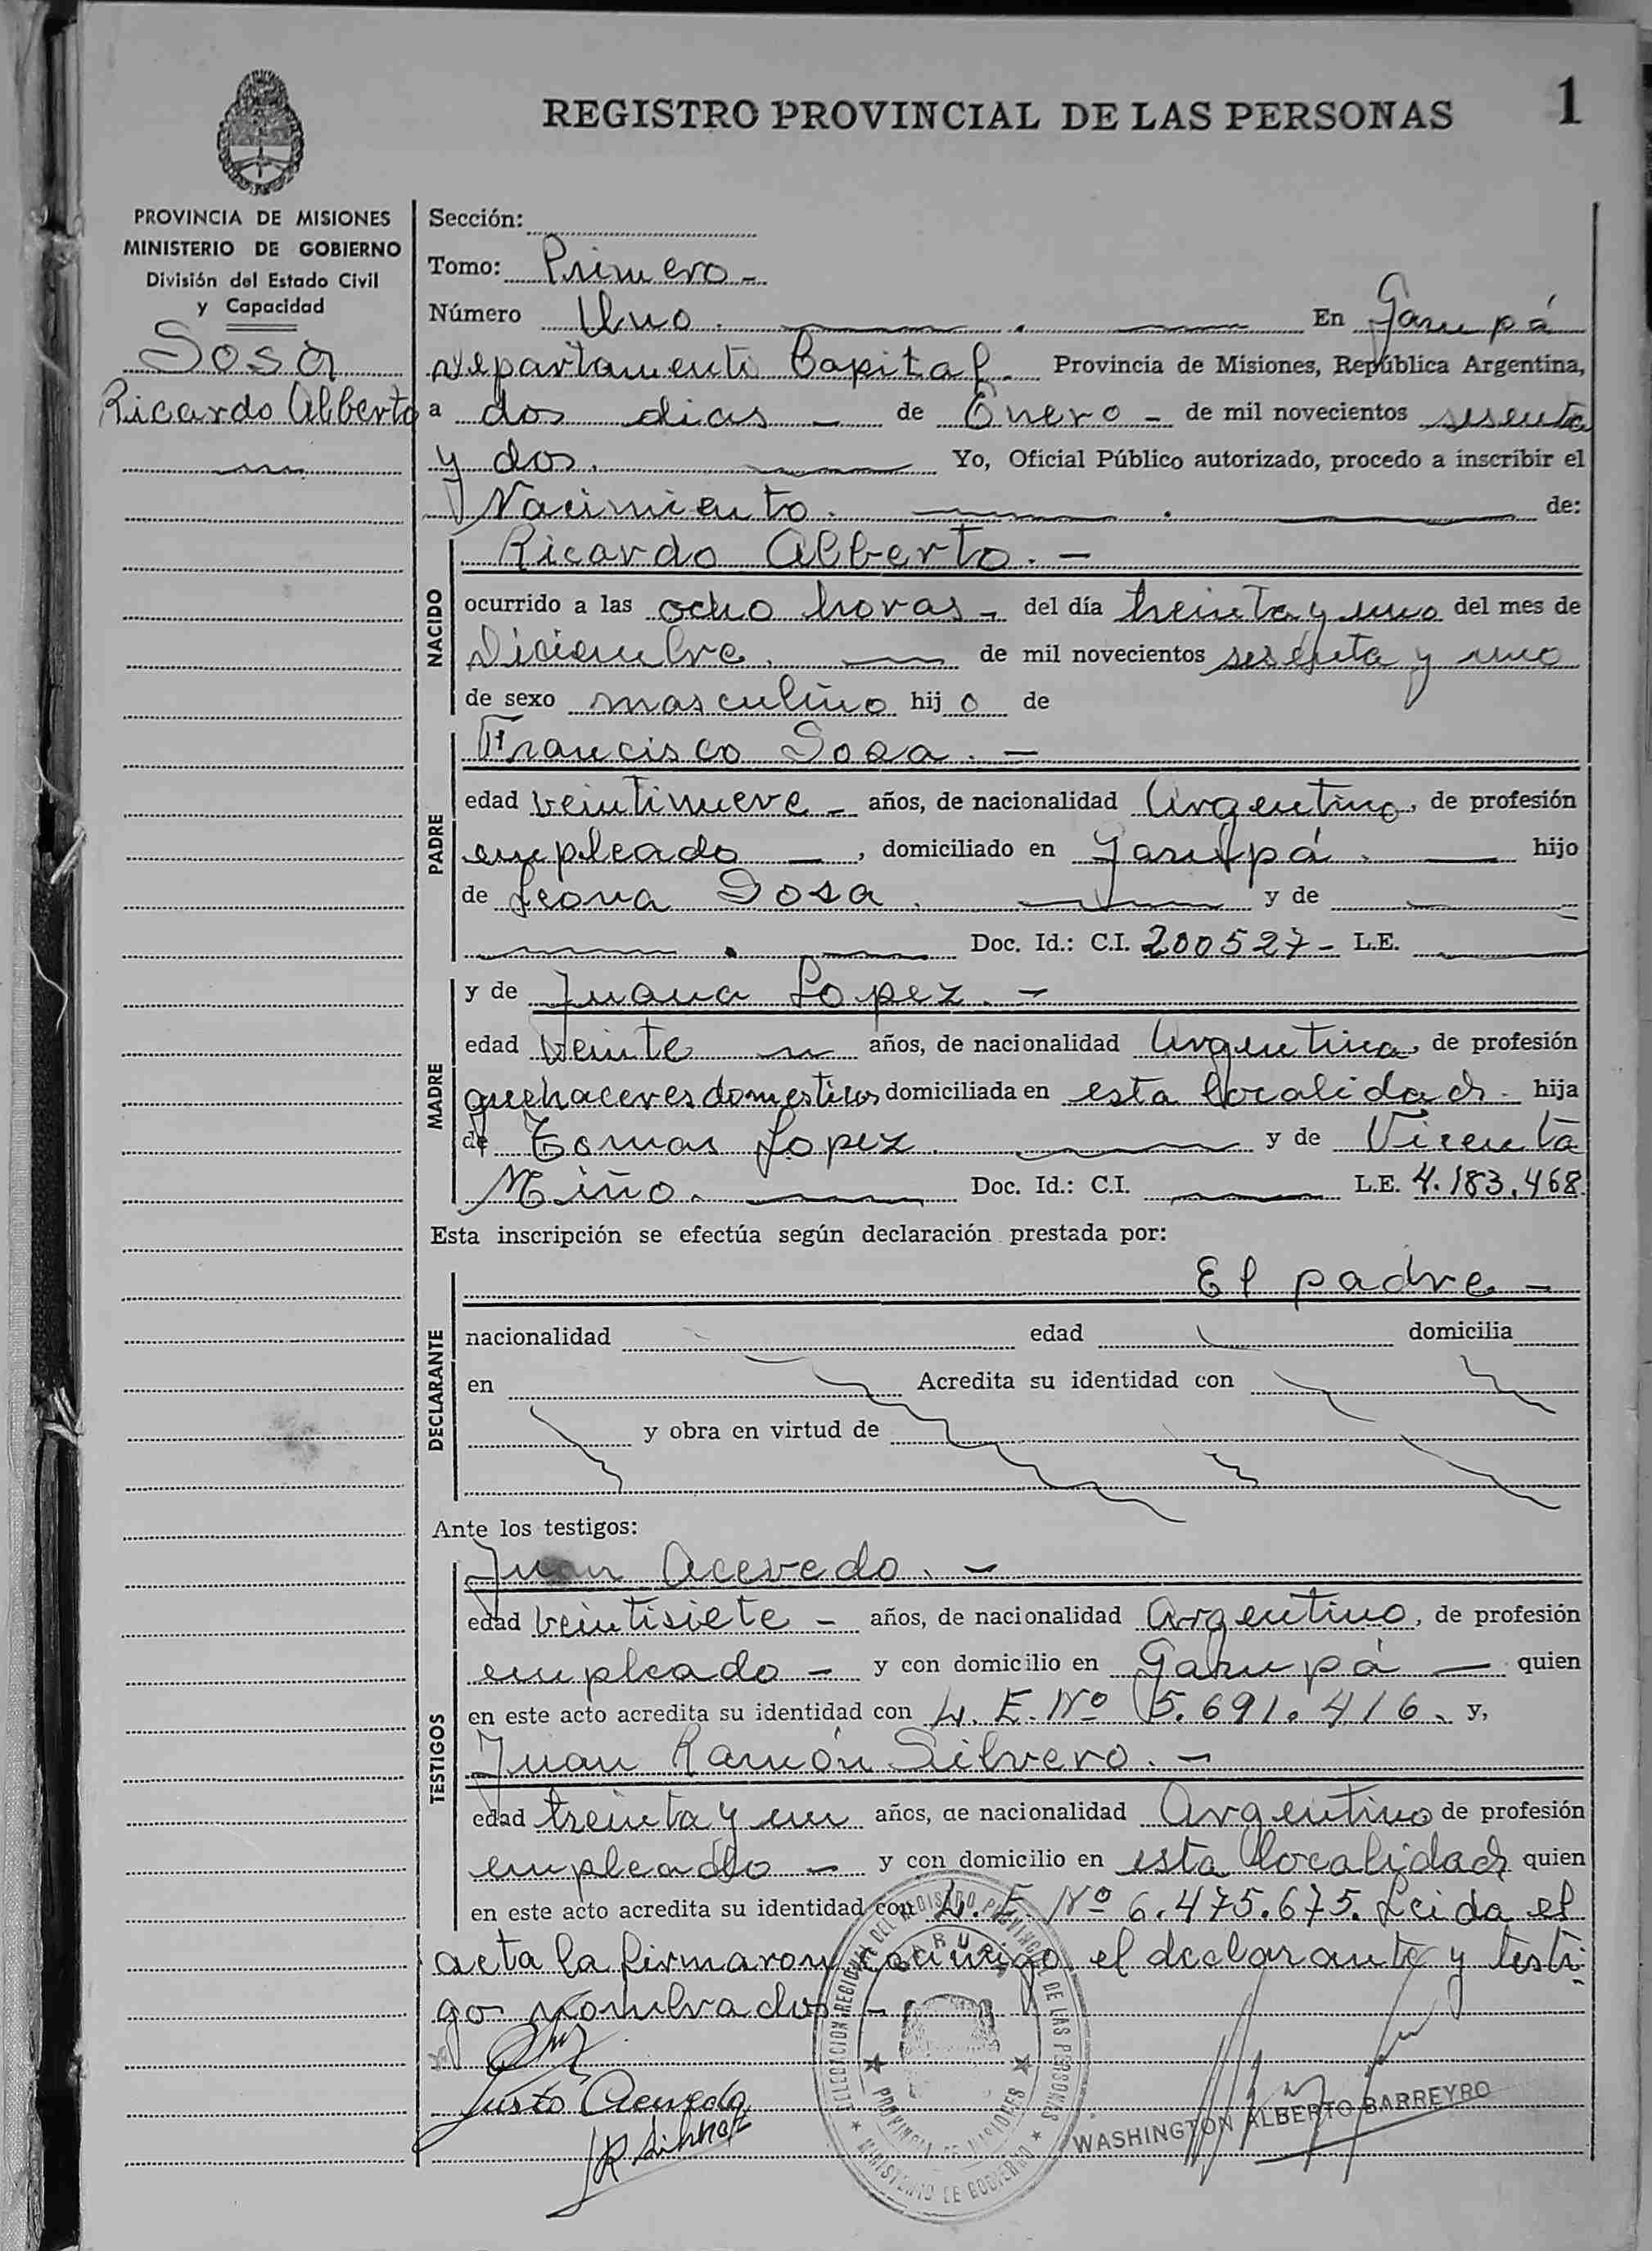 REGISTRO PROVINCIAL DE LAS PERSONAS 1
PROVINCIA DE MISIONES
MINISTERIO DE GOBIERNO
División del Estado Civil
y Capacidad
Sosa
Ricardo Alberto
Sección:
Tomo: Primero -
Número Uno. En Garupá
departamento Capital. Provincia de Misiones, República Argentina,
a dos dias - de Enero - de mil novecientos sesenta
y dos. Yo, Oficial Público autorizado, procedo a inscribir el
Nacimiento. de:
NACIDO
Ricardo Alberto. -
ocurrido a las ocho horas - del día treinta y uno del mes de
Diciembre. de mil novecientos sesenta y uno
de sexo masculino hij o de
PADRE
Francisco Sosa. -
edad veintinueve - años, de nacionalidad Argentino, de profesión
empleado -, domiciliado en Garupá. hijo
de Leona Sosa. y de
Doc. Id.: C.I. 200527- L.E.
MADRE
y de Juana Lopez. -
edad veinte años, de nacionalidad Argentina, de profesión
quehaceres domesticos domiciliada en esta localidad. hija
de Tomas Lopez. y de Vicenta
Miño. Doc. Id.: C.I. L.E. 4.183.468.
Esta inscripción se efectúa según declaración prestada por:
DECLARANTE
El padre -
nacionalidad edad domicilia
en Acredita su identidad con
y obra en virtud de
Ante los testigos:
TESTIGOS
Juan Acevedo. -
edad veintisiete - años, de nacionalidad Argentino, de profesión
empleado - y con domicilio en Garupá - quien
en este acto acredita su identidad con L. E. Nº 5.691.416. y,
Juan Ramón Silvero. -
edad treinta y un años, de nacionalidad Argentino de profesión
empleado - y con domicilio en esta localidad quien
en este acto acredita su identidad con L. E. Nº 6.475.675. Leida el
acta la firmaron conmigo el declarante y testi-
go nombrados. -
Justo Acevedo
WASHINGTON ALBERTO BARREYRO
DELEGACION REGIONAL DEL REGISTRO PROVINCIAL DE LAS PERSONAS
GARUPA
PROVINCIA DE MISIONES
MINISTERIO DE GOBIERNO